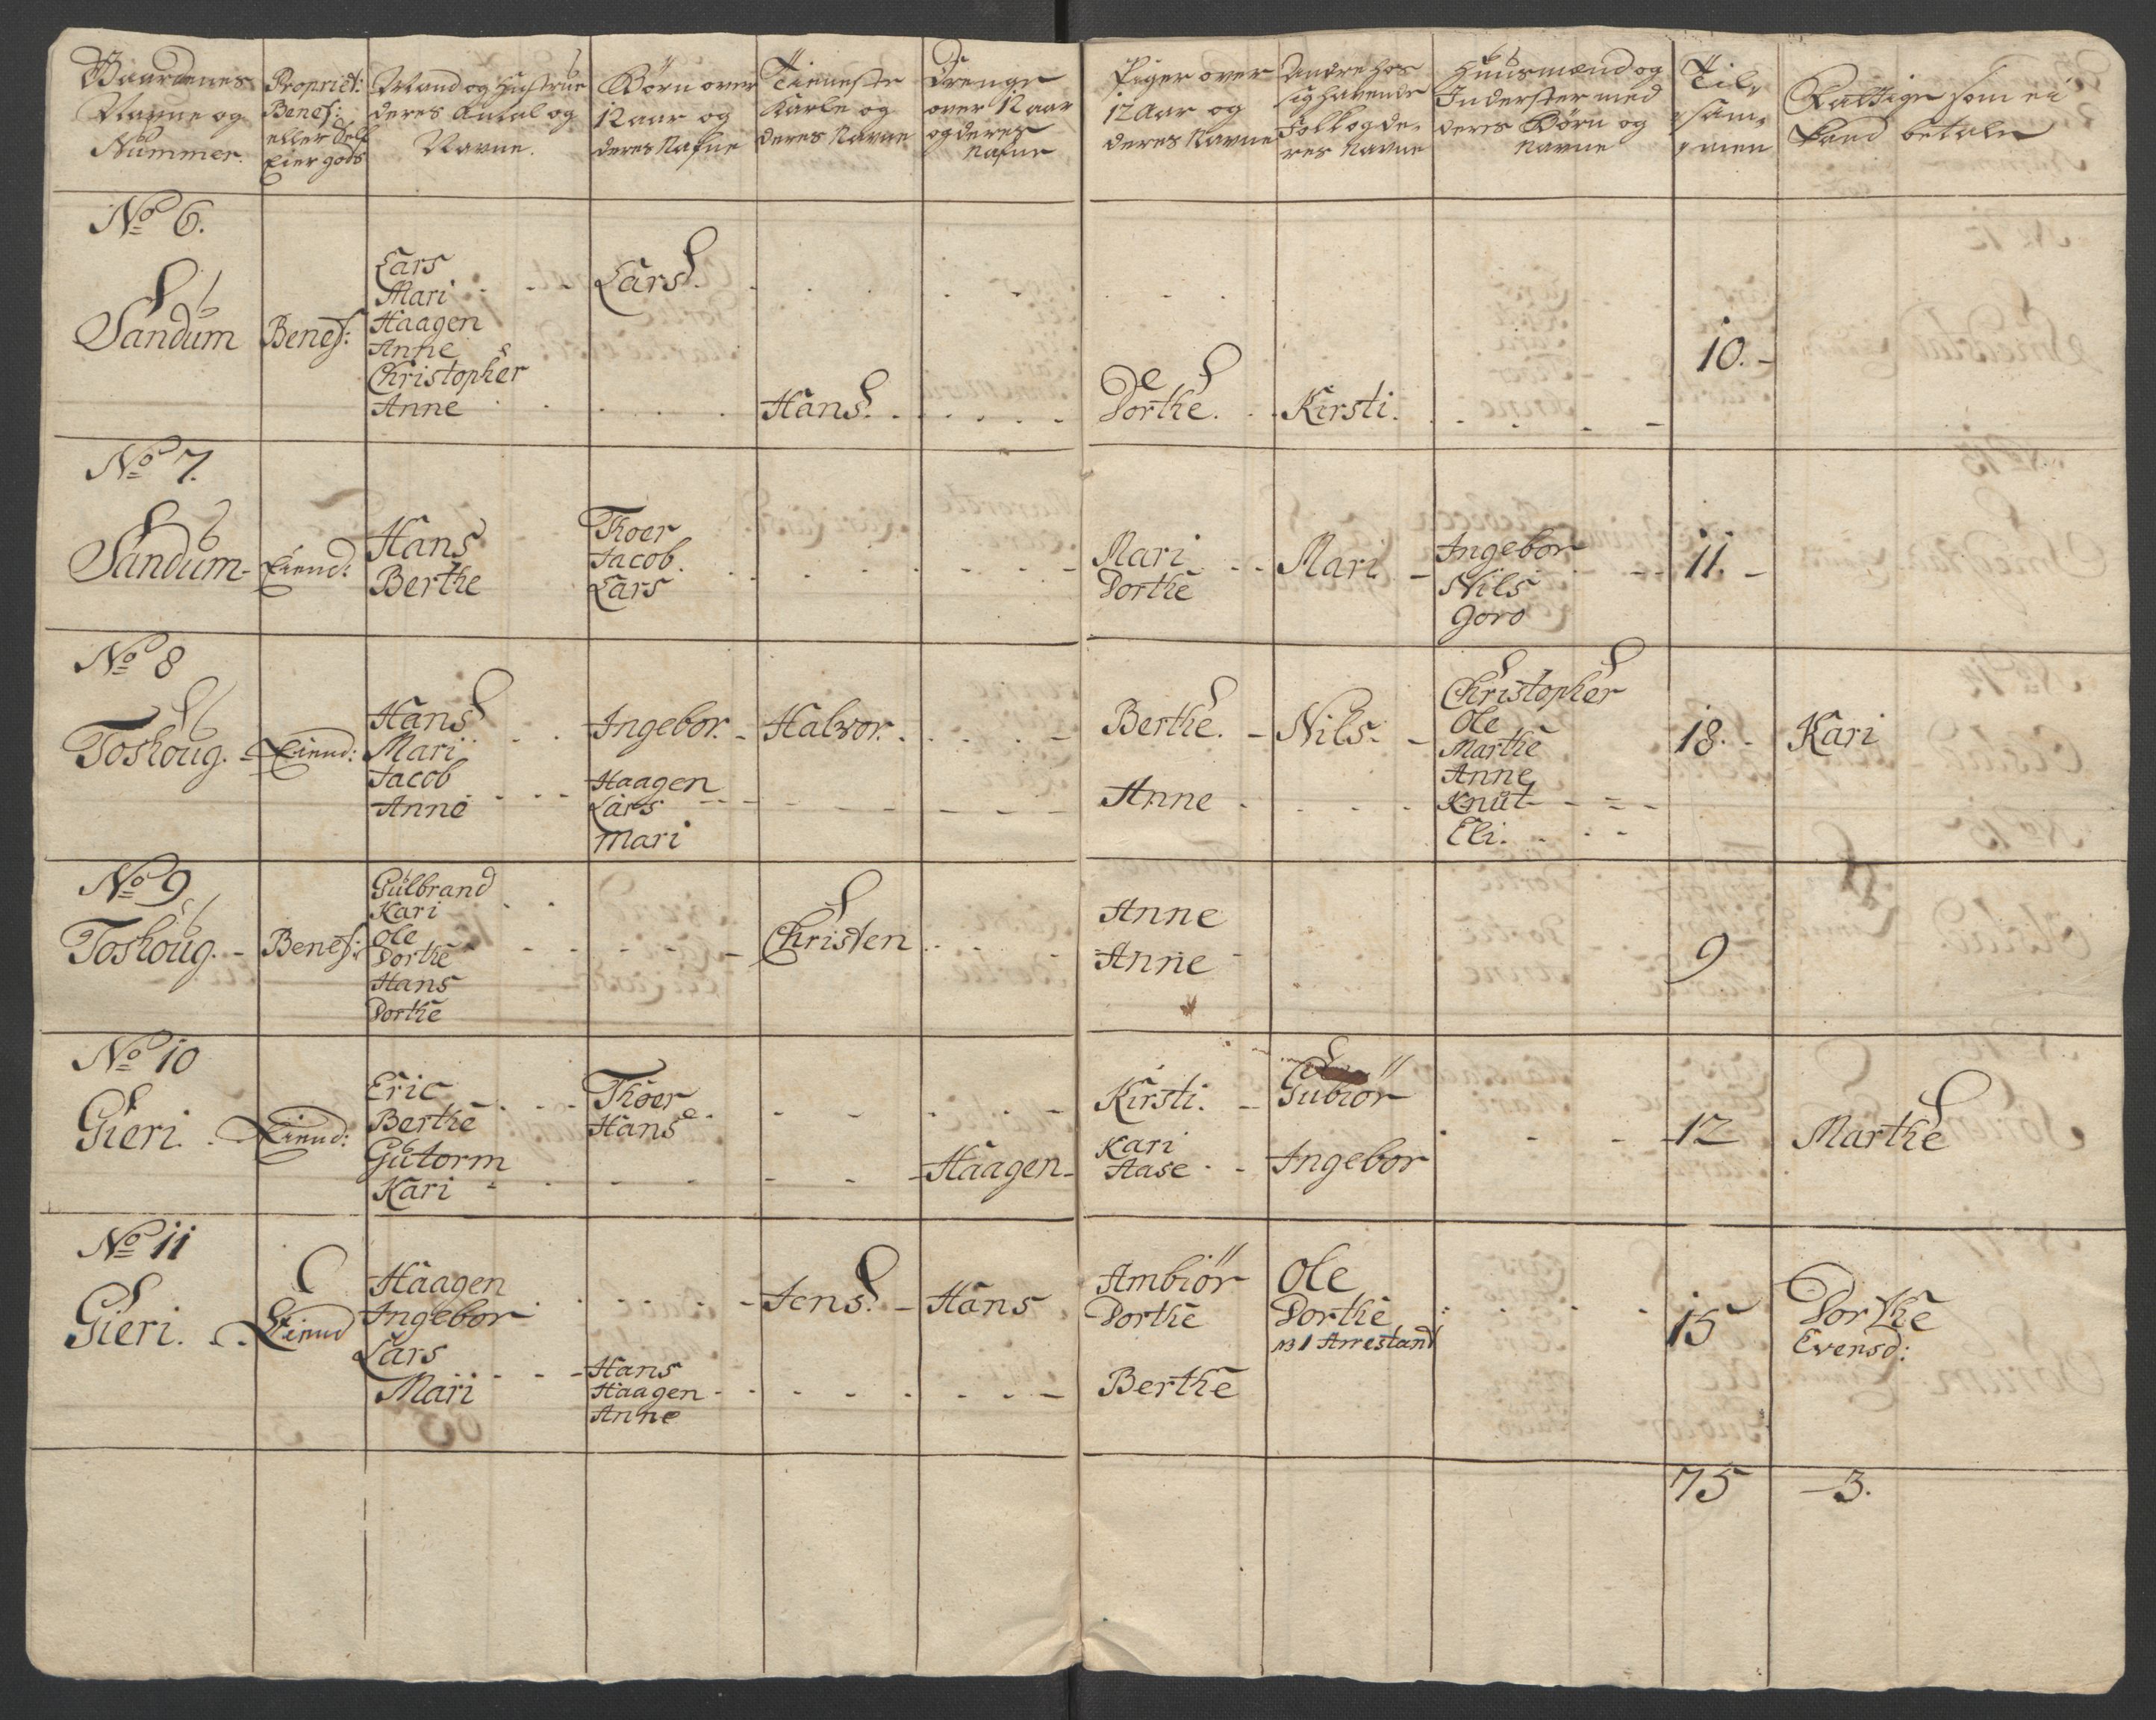 Gaardenes Navne og Nummer.
Propriet: Benef: eller Self Eier gods
Mand og Hustrue deres Antal og Navne.
Børn over 12 aar og deres Nafne
Tieneste Karle og deres Navne
Drenge over 12 aar og deres Nafne
Piger over 12 Aar og deres Navne
Andre hos sig havende Folk og deres Navne
Huusmænd og Inderster med deres Børn og Navne
Tilsammen
Fattige som ei kand betale
No 6.
Sandum
Benef:
Lars
Mari
Haagen
Anne
Christopher
Anne
Lars
Hans
Dorthe
Kirsti
10.
No 7.
Sandum
Eiend:
Hans
Berthe
Thoer
Jacob
Lars
Mari
Dorthe
Mari
Ingebor
Nils
Goro
11.
No 8
Toshoug
Eiend:
Hans
Mari
Jacob
Anne
Ingebor
Haagen
Lars
Mari
Halvor
Berthe
Anne
Nils
Christopher
Ole
Marthe
Anne
Knut
Eli
18.
Kari
No 9
Toshoug
Benef:
Gulbrand
Kari
Ole
Dorthe
Hans
Dorthe
Christen
Anne
Anne
9
No 10
Gieri
Eiend:
Eric
Berthe
Gutorm
Kari
Thoer
Hans
Haagen
Kirsti
Kari
Aase
Gubiør
Ingebor
12
Marthe
No 11
Gieri
Eiend
Haagen
Ingebor
Lars
Mari
Hans
Haagen
Anne
Jens
Hans
Ambiør
Dorthe
Berthe
Ole
Dorthe
1 Arrestand
15
Dorthe
Evensd:
75
3.